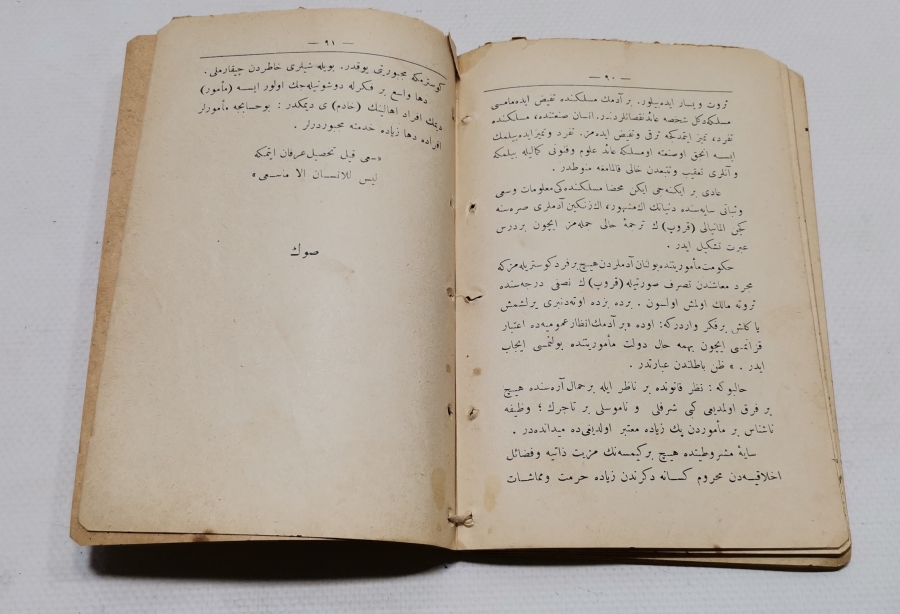 — ٩٠ —
ثروت ويسار ايده‌بيلور. بر آدمك مسلكنده تفيض ايده‌مامسى
مسلكه دكل شخصه عائد نقصانلردندر. انسان صنعتنده، مسلكنده
تفرد، تميز ايتمدكجه ترقى وتفيض ايده‌مز. تفرد وتميز ايده‌بيلمك
ايسه انجق اوصنعته اومسلكه عائد علوم وفنونى كماليله بيلمكه
و آنلرى تعقيب وتتبعدن خالى قالمامغه منوطدر.
عادى بر ايكنه‌جى ايكن محضا مسلكنده‌كى معلومات وسعى
وثباتى سايه‌سنده دنيانك اك مشهور، اك زنكين آدملرى صره‌سنه
كچن المانيالى (قروپ) ك ترجمهٔ حالى جمله‌مز ايچون بردرس
عبرت تشكيل ايدر.
حكومت مأموريتنده بولنان آدملردن هيچ برفرد كوستريله‌مزكه
مجرد معاشندن تصرف صورتيله (قروپ) ك نصفى درجه‌سنده
ثروته مالك اولمش اولسون. برده بزده اوته‌دنبرى يرلشمش
ياكلش برفكر واردركه: اوده «بر آدمك انظار عموميه‌ده اعتبار
قزانمسى ايچون بهمه حال دولت مأموريتنده بولنمسى ايجاب
ايدر.» ظن باطلندن عبارتدر.
حالبوكه: نظر قانونده بر ناظر ايله برحمال آره‌سنده هيچ
بر فرق اولمديغى كبى شرفلى و ناموسلى بر تاجرك؛ وظيفه
ناشناس بر مأموردن پك زياده معتبر اولديغى‌ده ميدانده‌در.
سايهٔ مشروطيتده هيچ بركيمسه‌نك مزيت ذاتيه وفضائل
اخلاقيه‌دن محروم كسانه دكرندن زياده حرمت ومماشات
— ٩١ —
كوسترمكه مجبوريتى يوقدر. بويله شيلرى خاطردن چيقارملى.
دها واسع بر فكرله دوشونيله‌جك اولور ايسه (مأمور)
ديمك افراد اهالينك (خادم) ى ديمكدر: بوحسابجه مأمورلر
افراده دها زياده خدمته مجبوردرلر.
«سعى قيل تحصيل عرفان ايتمكه
ليس للانسان الا ماسعى»
صوك